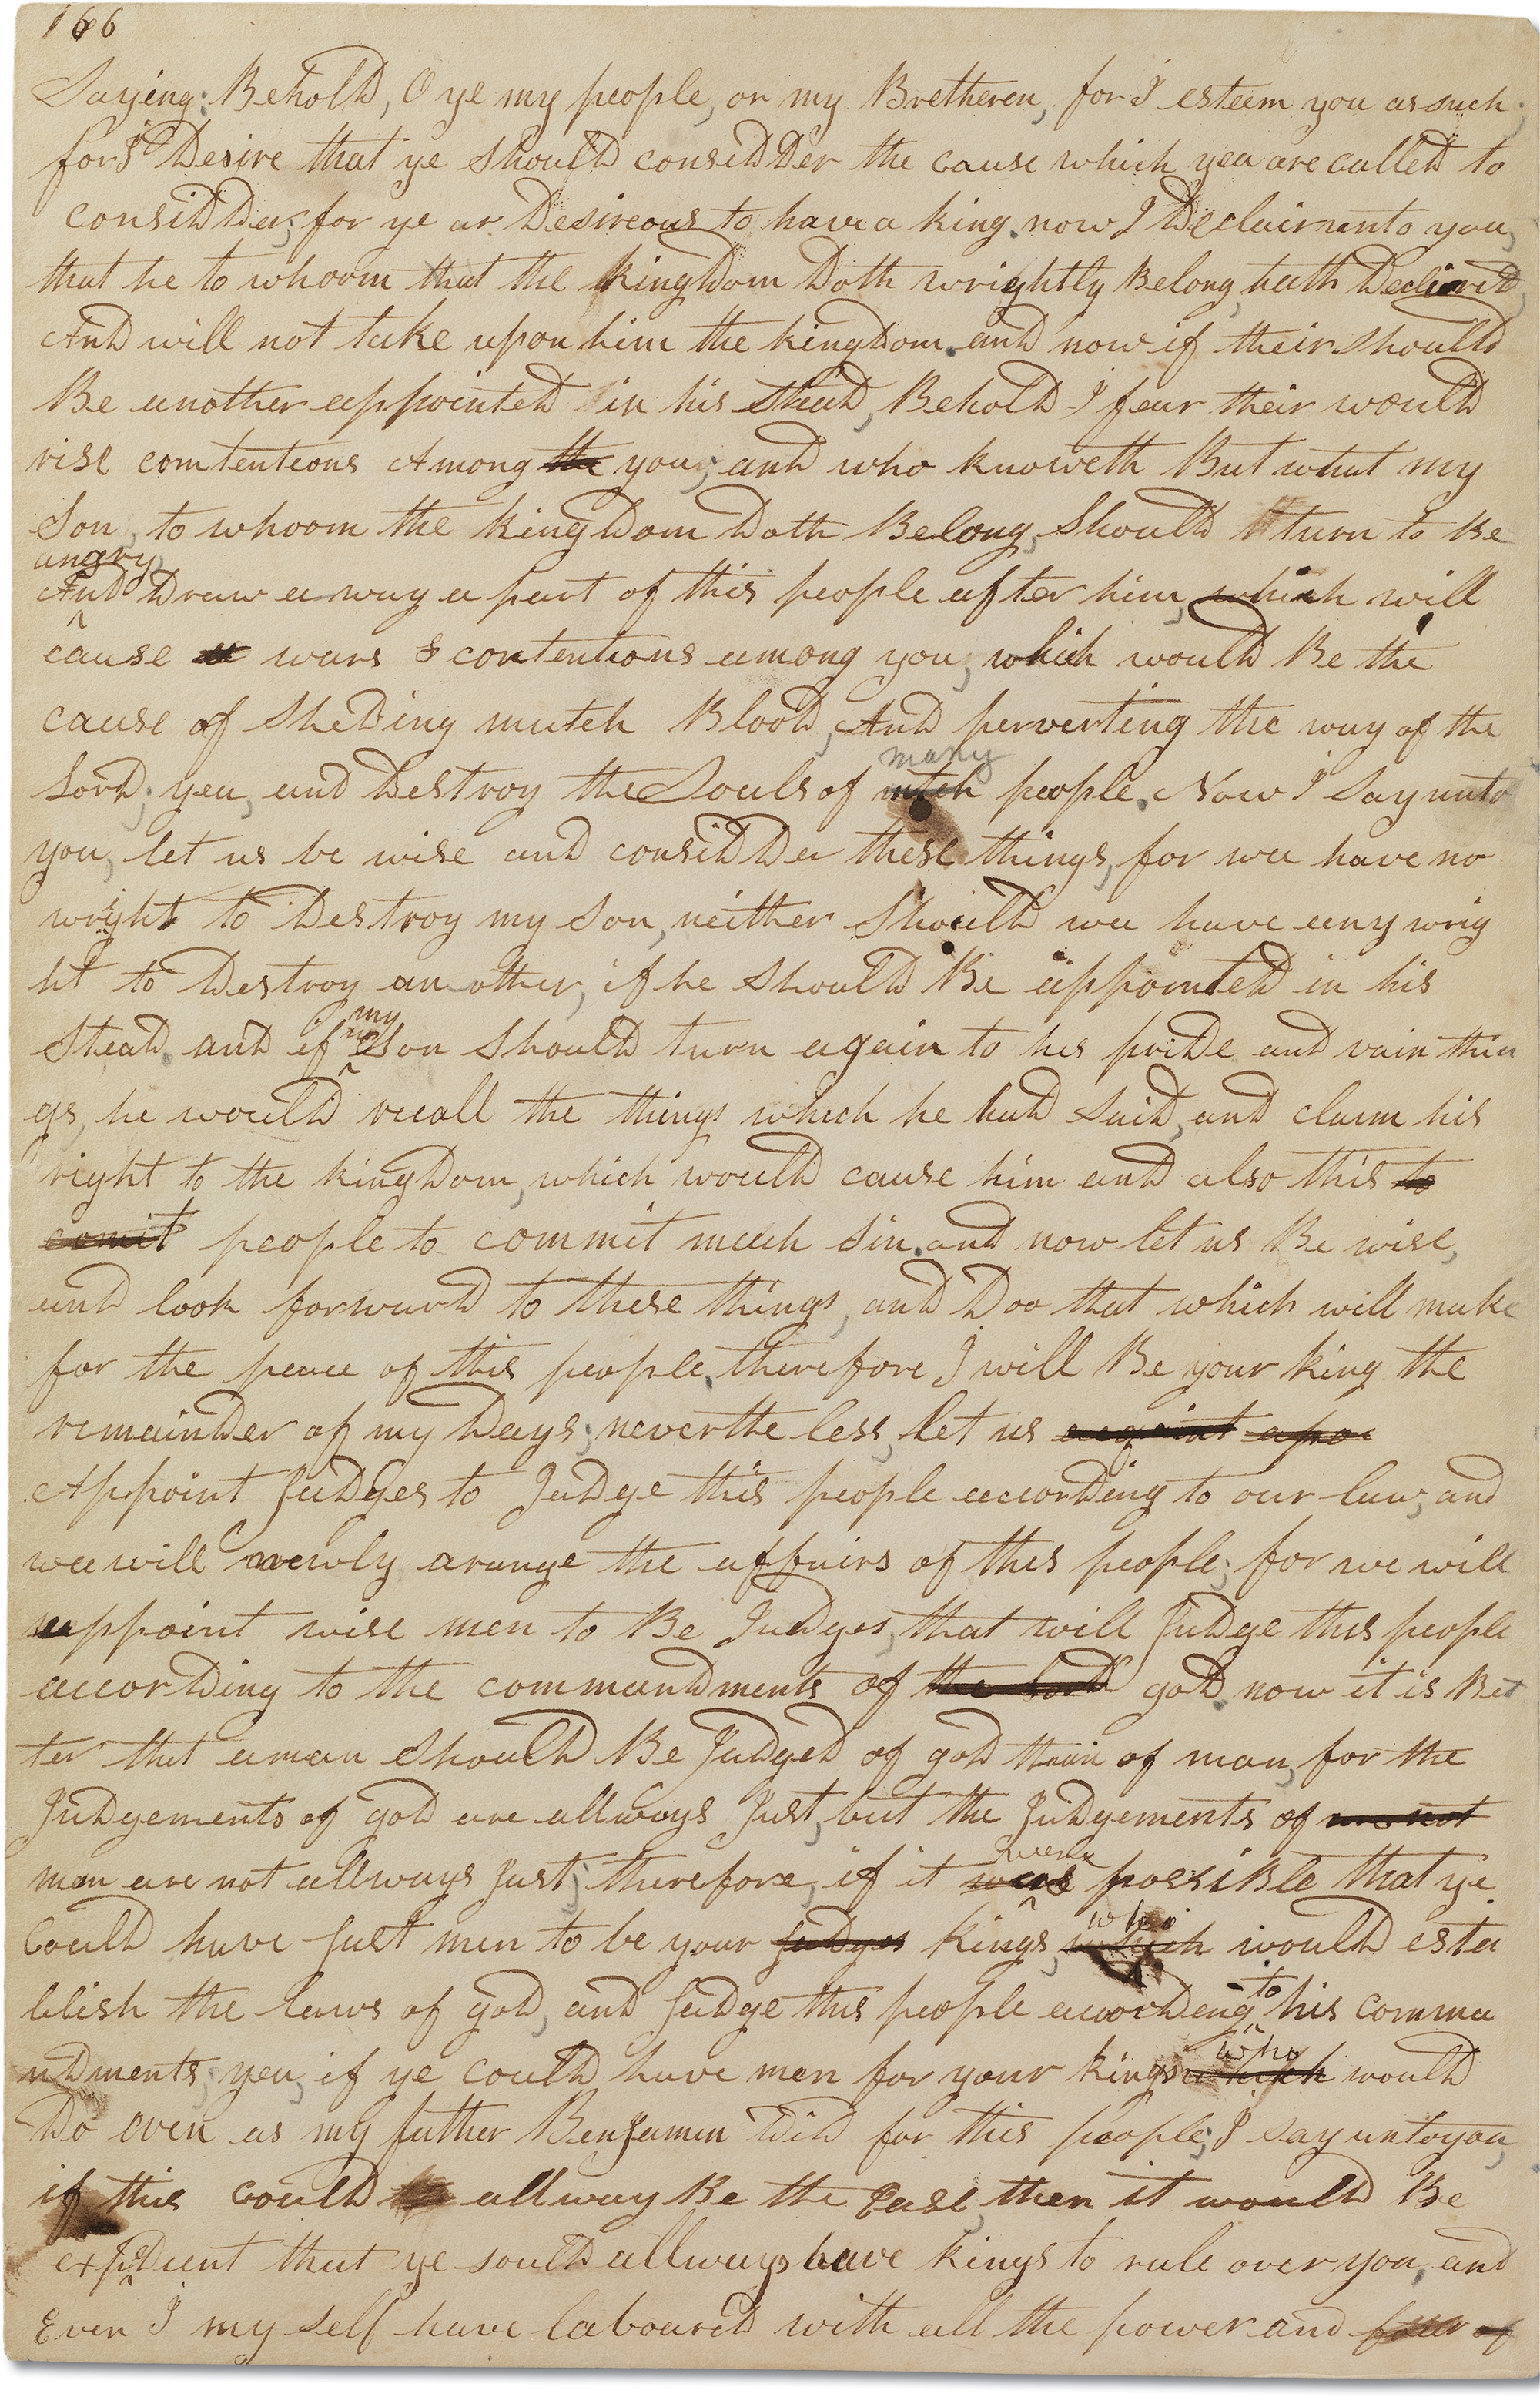 166
Saying: Behold, O ye my people, or my Bretheren, for I esteem you as such;
for I Desire that ye should considder the cause which yea are called to
considder; for ye ar Desireous to have a king. now I Declair unto you,
that he to whoom that the kingdom Doth wrightly Belong, hath Declined,
And will not take upon him the kingdom. and now if their should
Be another appointed in his stead, Behold I fear their would
rise comtentions Among the you; and who knoweth But what my
Son, to whoom the kingdom Doth Belong, should turn to Be
angry
And Draw away a part of this people after him, which will
cause wars & contentions among you, which would Be the
cause of sheding mutch Blood, And perverting the way of the
many
Lord; yea, and Destroy the Souls of mutch people. Now I Say unto
you, let us be wise and considder these things, for wee have no
wright to Destroy my son, neither should wee have eny wrig
ht to Destroy another, if he should Be appointed in his
my
Stead. and if Son should turn again to his pride and vain thin
gs, he would recall the things which he had said, and claim his
right to the kingdom, which would cause him and also this to
comit people to commit much sin. and now let us Be wise,
and look forward to these things, and Doo that which will make
for the peace of this people. therefore I will Be your king the
remainder of my Days; neverthe less, let us
Appoint Judges to Judge this people according to our law, and
wee will newly arange the affairs of this people; for we will
appoint wise men to Be Judges, that will Judge this people
according to the commandments of the Lord god. now it is Bet
ter that a man should Be Judged of god than of man, for the
Judgements of god are allways Just, but the Judgements of are not
man are not allways Just; therefore, if it
were
was possible that ye
Could have Just men to be your Judges kings,
who
which would esta
blish the laws of god, and Judge this people acordeing to his comma
ndments; yea, if ye could have men for your kings
who
which would
Do even as my father Benjamin Did for this people; I say unto you,
if this could allway Be the Case, then it would Be
expedient that ye sould allways have kings to rule over you. and
Even I my self have laboured with all the power and